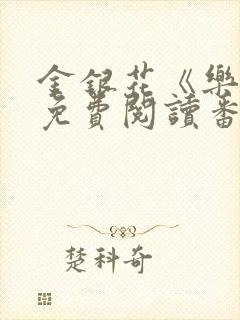 金銀花《樂
免費閱讀番
楚科奇